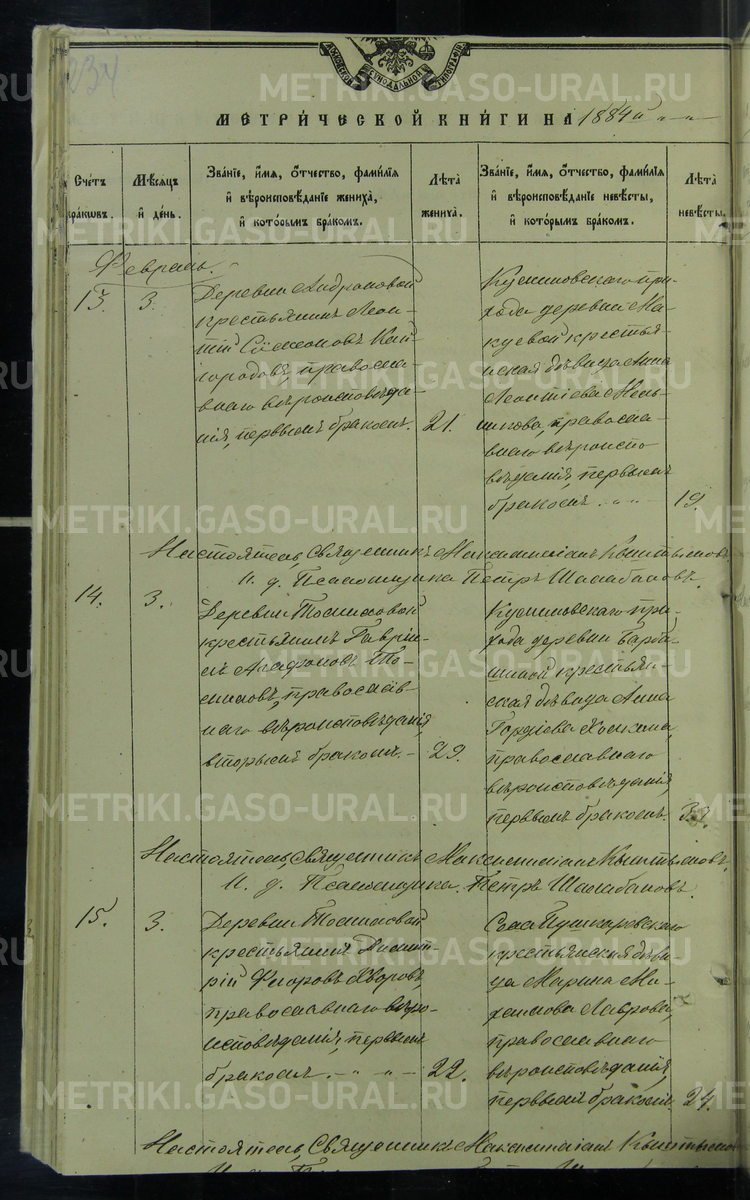 234
МЕТРИЧЕСКОЙ КНИГИ НА 1884й
Счетъ браковъ.
Мѣсяцъ и день.
Званіе, имя, отчество, фамилія и вѣроисповѣданіе жениха, и которымъ бракомъ.
Лѣта жениха.
Званіе, имя, отчество, фамилія и вѣроисповѣданіе невѣсты, и которымъ бракомъ.
Лѣта невѣсты.
Февраль.
13.
3.
Деревни
крестьянинъ Леон-
тій Сѵмеоновъ Кай-
городовъ, правосла-
внаго вѣроисповѣда-
нія, первымъ бракомъ.
21.
при-
хода деревни Ма-
куевой крестья-
нская дѣвица Анна
Леонтіева Мень-
шикова, правосла-
внаго вѣроиспо-
вѣданія, первымъ
бракомъ.
19.
Настоятель, Священникъ Максимиліанъ
И. д. Псаломщика Петръ Шалабановъ.
14.
3.
Деревни
крестьянинъ Гаврі-
илъ Агафоновъ
православ-
наго вѣроисповѣданія,
вторымъ бракомъ.
29.
при-
хода деревни
крестьян-
ская дѣвица Анна
Гордіева
православнаго
вѣроисповѣданія,
первымъ бракомъ.
33.
Настоятель, Священникъ Максимиліанъ
И. д. Псаломщика. Петръ Шалабановъ.
15.
3.
Деревни
крестьянинъ Димит-
рій Ѳедоровъ
православнаго вѣро-
исповѣданія, первымъ
бракомъ.
22.
Села Пушкаровскаго
крестьянская дѣви-
ца Марина Ма-
Лаврова,
православнаго
вѣроисповѣданія,
первымъ бракомъ.
24.
Настоятель, Священникъ Максимиліанъ
METRIKI.GASO-URAL.RU